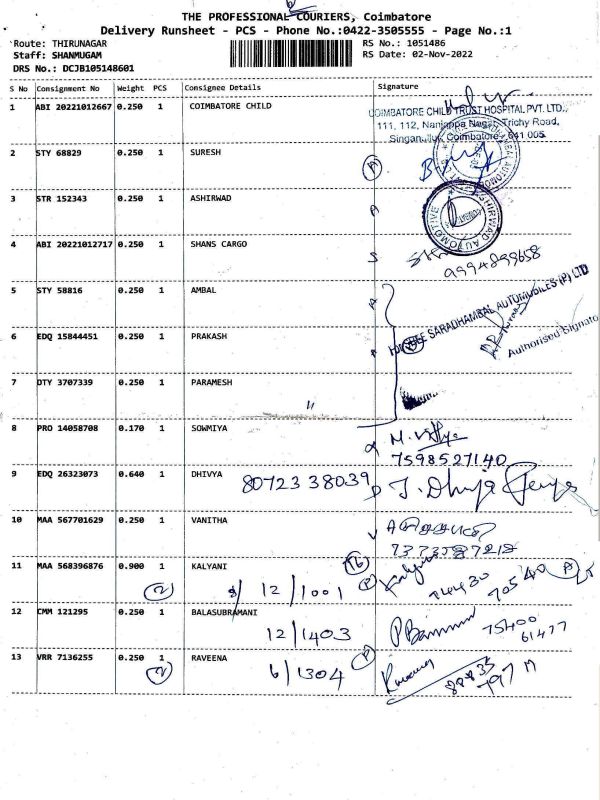 THE PROFESSIONAL COURIERS, Coimbatore
Delivery Runsheet - PCS - Phone No.:0422-3505555 - Page No.:1
Route: THIRUNAGAR RS No.: 1051486
Staff: SHANMUGAM RS Date: 02-Nov-2022
DRS No.: DCJB105148601
S No Consignment No Weight PCS Consignee Details Signature
1 ABI 20221012667 0.250 1 COIMBATORE CHILD
COIMBATORE CHILD TRUST HOSPITAL PVT. LTD.,
111, 112, Nanjappa Nagar, Trichy Road,
Singanallur, Coimbatore - 641 005
2 STY 68829 0.250 1 SURESH
3 STR 152343 0.250 1 ASHIRWAD
ASHIRWAD AUTOMOTIVE
4 ABI 20221012717 0.250 1 SHANS CARGO
9994899658
5 STY 58816 0.250 1 AMBAL
SARADHAMBAL AUTOMOBILES (P) LTD
6 EDQ 15844451 0.250 1 PRAKASH
Authorised Signato
7 DTY 3707339 0.250 1 PARAMESH
8 PRO 14058708 0.170 1 SOWMIYA
7598527140
9 EDQ 26323073 0.640 1 DHIVYA 80723 38039
10 MAA 567701629 0.250 1 VANITHA
11 MAA 568396876 0.900 1 KALYANI
12/1001
12 CMM 121295 0.250 1 BALASUBRAMANI
12/1403 75400
61477
13 VRR 7136255 0.250 1 RAVEENA
6/1304